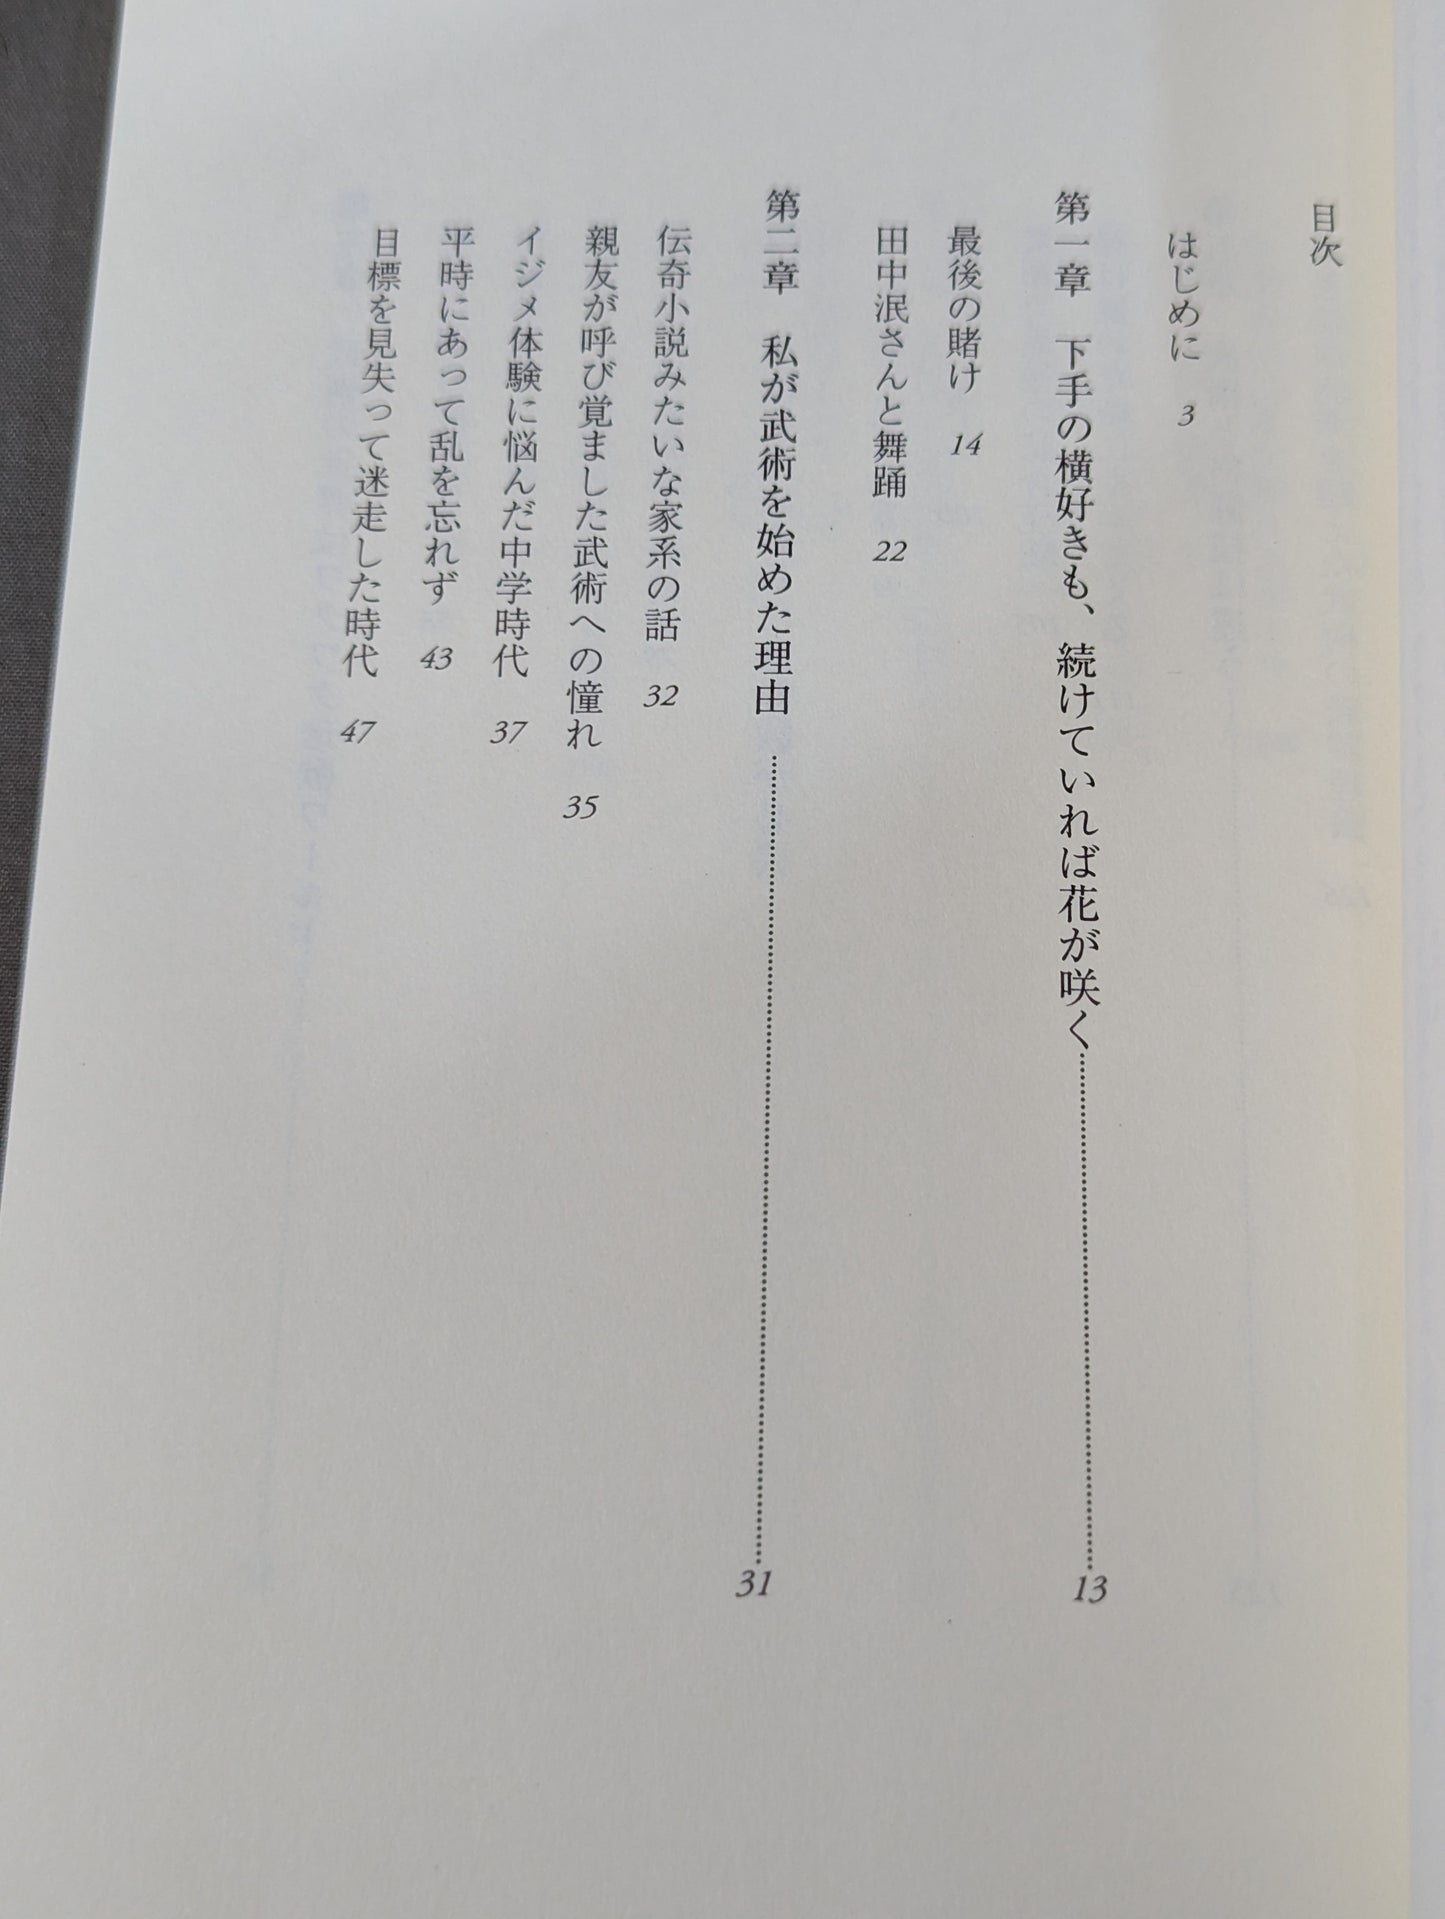 目次
はじめに 3
第一章 下手の横好きも、続けていれば花が咲く……13
最後の賭け 14
田中泯さんと舞踊 22
第二章 私が武術を始めた理由……31
伝奇小説みたいな家系の話 32
親友が呼び覚ました武術への憧れ 35
イジメ体験に悩んだ中学時代 37
平時にあって乱を忘れず 43
目標を見失って迷走した時代 47